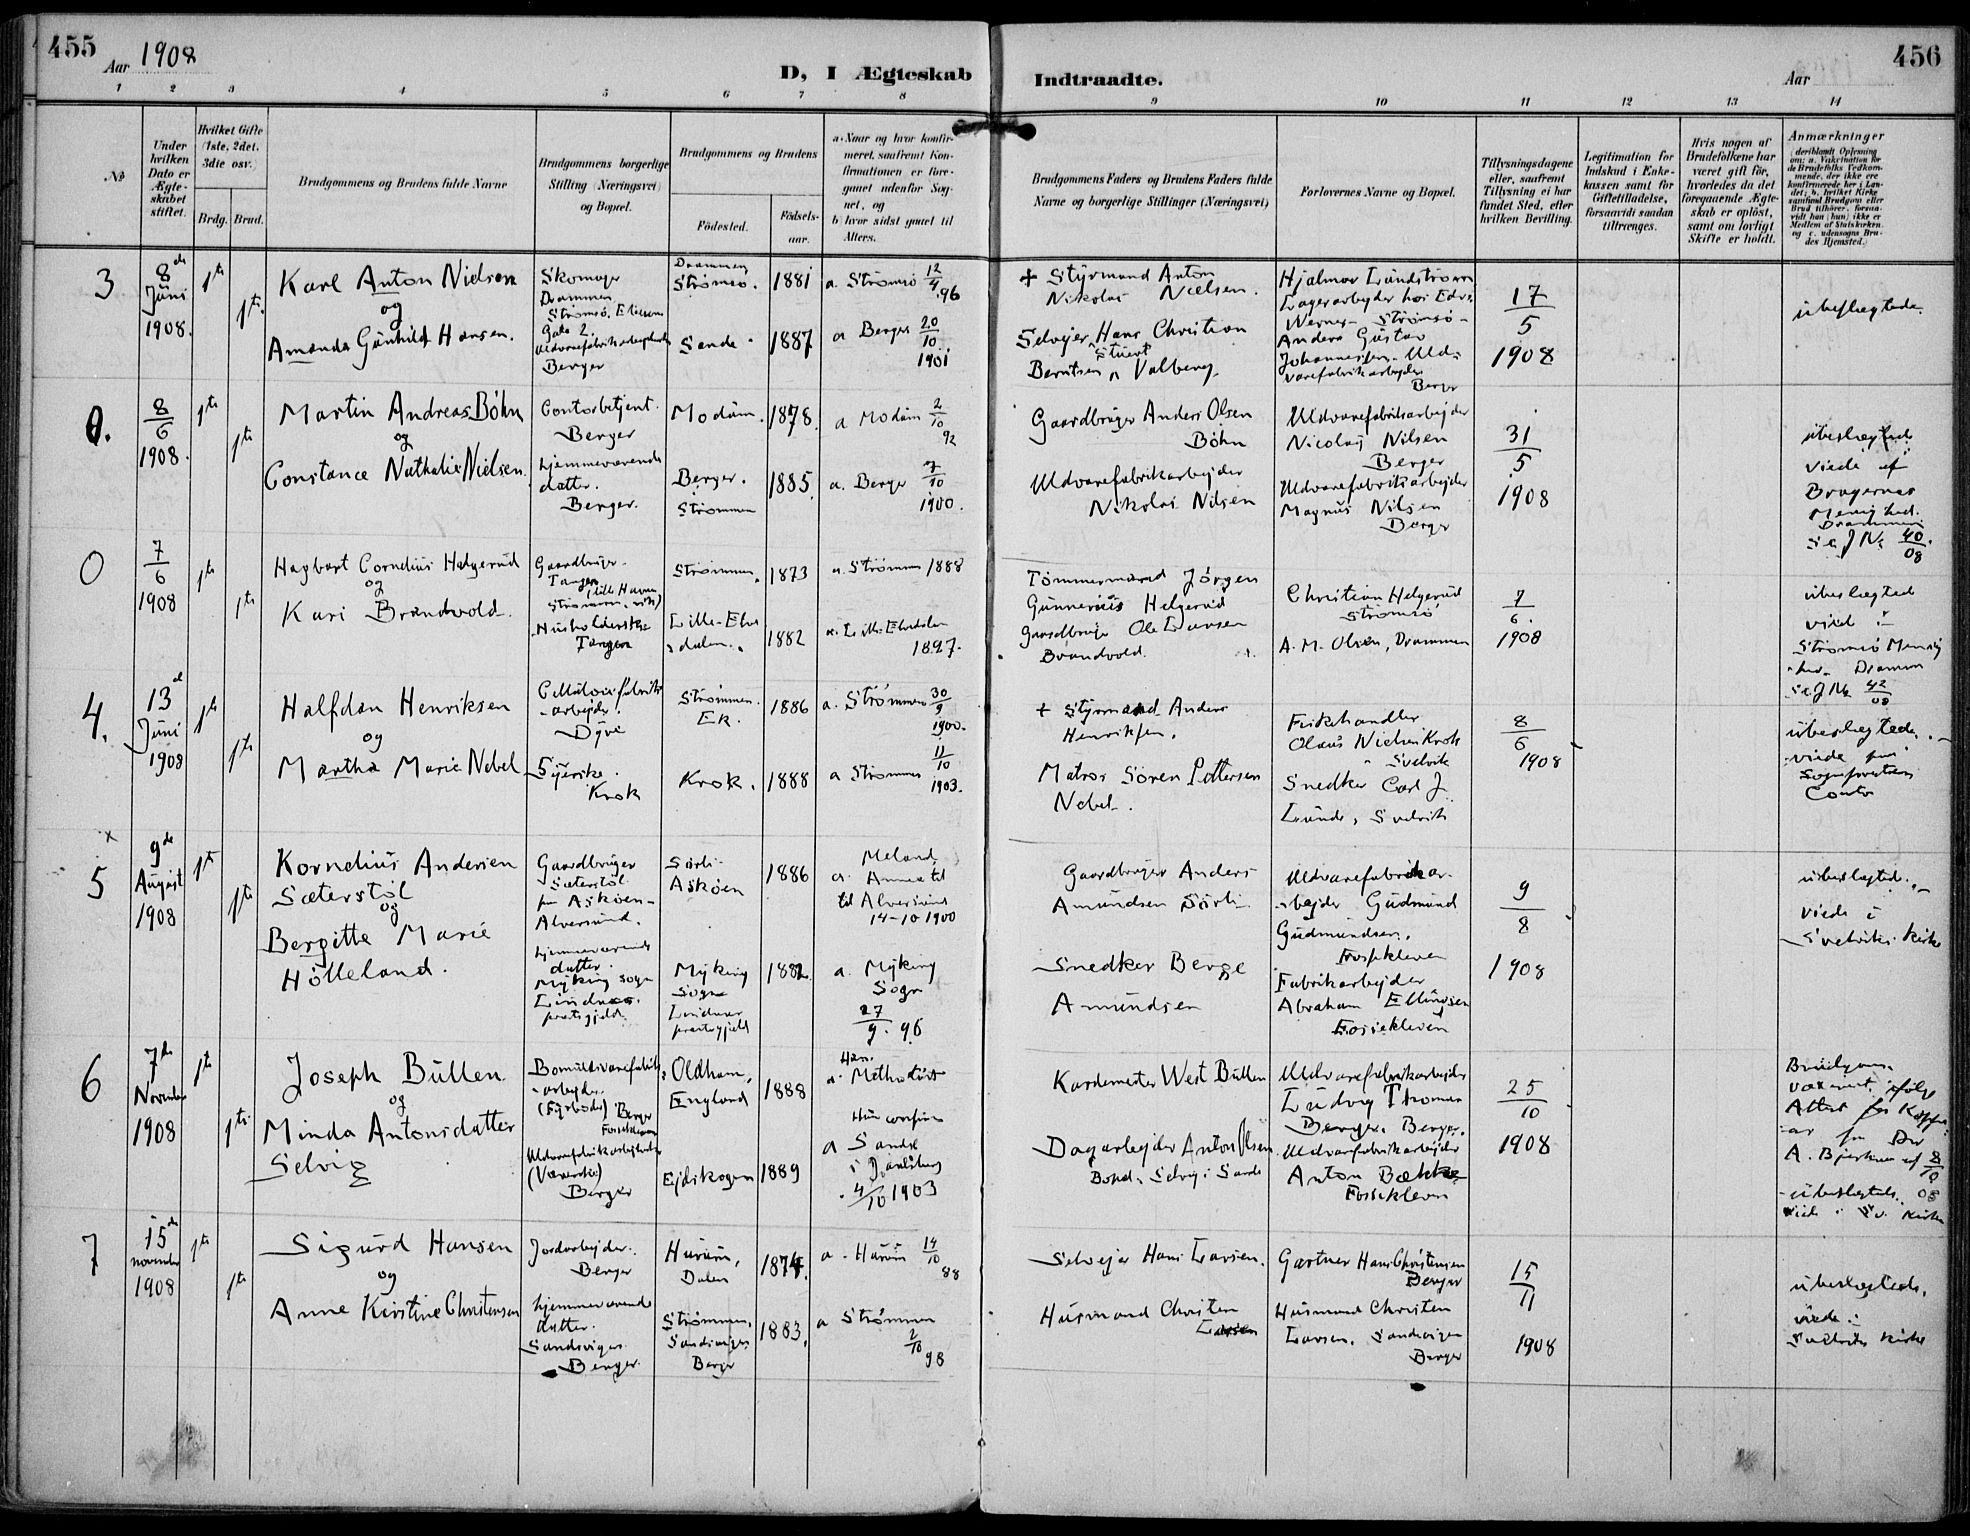 455
Aar 1908
D, I Ægteskab
Indtraadte.
Aar
456
1 2 3 4 5 6 7 8 9 10 11 12 13 14
No
Under hvilken Dato er Ægteskabet stiftet.
Hvilket Gifte (1ste, 2det, 3die osv.)
Brdg. Brud.
Brudgommens og Brudens fulde Navne
Brudgommens borgerlige Stilling (Næringsvei) og Bopæl.
Brudgommens og Brudens
Födested.
Födsels-aar.
a. Naar og hvor konfirmeret, saafremt Konfirmationen er foregaaet udenfor Sognet, og
b. hvor sidst gaaet til Alters.
Brudgommens Faders og Brudens Faders fulde Navne og borgerlige Stillinger (Næringsvei)
Forlovernes Navne og Bopæl.
Tillysningsdagene eller, saafremt Tillysning ei har fundet Sted, efter hvilken Bevilling.
Legitimation for Indskud i Enkekassen samt for Giftetilladelse, forsaavidt saadan tiltrænges.
Hvis nogen af Brudefolkene har været gift før, hvorledes da det foregaaende Ægteskab er opløst, samt om lovligt Skifte er holdt.
Anmærkninger
3
8de Juni 1908.
1ste
1ste
Karl Anton Nielsen
og
Amanda Günhild Hansen.
Skomager
Drammen
Strømsö,
Gade 2.
Berger
Drammen
Strømsö.
Sande
1881
1887
a. Strømsö 12/4 96
a Berger 20/10 1901
+ Styrmand Anton
Nikolai Nielsen.
Selvejer Hans Christian
Berntsen, Valberg
Hjalmar Lundstrøm
Lagerarbejder hos Edv.
Werner - Strømsö -
Anders Gustav
Johannesen. Uld-
varefabrikarbejder
Berger
17/5
1908
ubeslægtede.
0.
8/6
1908.
1ste
1ste
Martin Andreas Böhn
og
Constance Nathalie Nielsen.
Contorbetjent.
Berger
hjemmeværende
datter.
Berger.
Modum.
Berger.
Strömmen
1878.
1885.
a Modum 2/10 92
a. Berger 7/10 1900.
Gaardbruger Anders Olsen
Böhn
Uldvarefabrikarbejder
Nikolai Nilsen
Uldvarefabrikarbejder
Nicolai Nilsen
Berger
Uldvarefabrikarbejder
Magnus Nilsen
Berger
31/5
1908
ubeslægtede
viede af
Bragernes
Menighed.
Drammen
Se J No 40/08.
0
7/6
1908
1ste
1ste
Hagbart Cornelius Helgerud
og
Kari Brandvold.
Gaardbruger
Tangen
Husholderske
Tangen
Strømmen.
Lille-Elve
dalen.
1873
1882
a. Strømmen 1888
a. Lille Elvedalen
1897.
Tömmermand Jörgen
Gunnerius Helgerud
Gaardbruger Ole Larsen
Brandvold.
Christian Helgerud
Strømsö
A. M. Olsen, Drammen
7/6.
1908
ubeslægtede
viede i
Strømsö Menig
hed. Drammen
Se J No 42/08
4.
13de
Juni
1908
1ste
1ste
Halfdan Henriksen
og
Martha Marie Nebel
Cellulosefabrik
arbejder.
Dyve
Syerske.
Krok
Strømmen.
Ek.
Krok.
1886
1888
a. Strømmen 30/9 1900.
a Strømmen 11/10 1903.
+ Styrmand Anders
Henriksen.
Matros Sören Pettersen
Nebel.
Fiskehandler
Olaus Nielsen Krok
Svelvik
Snedker Carl J
Lunde, Svelvik
8/6
1908
ubeslægtede.
viede paa
Sogneprestens
Contor
x
5
9de
August
1908
1ste
1ste
Kornelius Andersen
Sæterstöl
og
Bergitte Marie
Hölleland.
Gaardbruger
Sæterstöl
paa Askøen
Alversund.
hjemmeværende
datter.
Myking sogn
Lindaas
præstegjeld
Askøen
Myking
Sogn
Lindaas
præstegjeld
1886
1882
Meland
a. Annex til
til Alversund
14-10 1900
a. Myking
Sogn
27/9. 96
Gaardbruger Anders
Amundsen
Snedker Berge
Amundsen
Uldvarefabrikar-
bejder Gudmund
Gudmundsen,
Fossekleven
Fabrikarbejder
Abraham Ellingsen
Fossekleven
9/8
1908
ubeslægtede.
viede i
Svelviks Kirke
6
7de
November
1908
1ste
1ste
Joseph Büllen
og
Minda Antonsdatter
Selvig
Bomuldsvarefabrik
-arbejder.
(Fyrbøder) Berger
Fossekleven
Uldvarefabrikarbejderske
(Væverske)
Berger
Oldham,
England
Ejdskogen
1888
1889
Han.
a. Methodist
Hun confirm
a Sande
i Jarlsberg
4/10 1903
Kardemester West Büllen
Dagarbejder Anton Olsen
Bond. Selvig i Sande
Uldvarefabrikarbejder
Ludvig Thomas
Berger. Berger.
Uldvarefabrikarbejder
Anton Bække
Fossekleven
25/10
1908
Brudgom.
vaccinert, ifølge
Attest
A. 8/10 08
ubeslægtede.
viede i Sv. Kirke
7
15de
november
1908
1ste
1ste
Sigurd Hansen
og
Anne Kirstine Christensen
Jordarbejder.
Berger
hjemmeværende
datter.
Sandvigen
Berger.
Hurum,
Dalen
Strømmen.
Sandvigen
Berger
1874.
1883.
a. Hurum 14/10 88
a Strømmen
2/10 98
Selvejer Hans Larsen.
Husmand Christen
Larsen
Gartner Hans Christensen
Berger
Husmand Christen
Larsen. Sandvigen
Berger
15/11
1908
ubeslægtede.
viede i
Svelviks Kirke